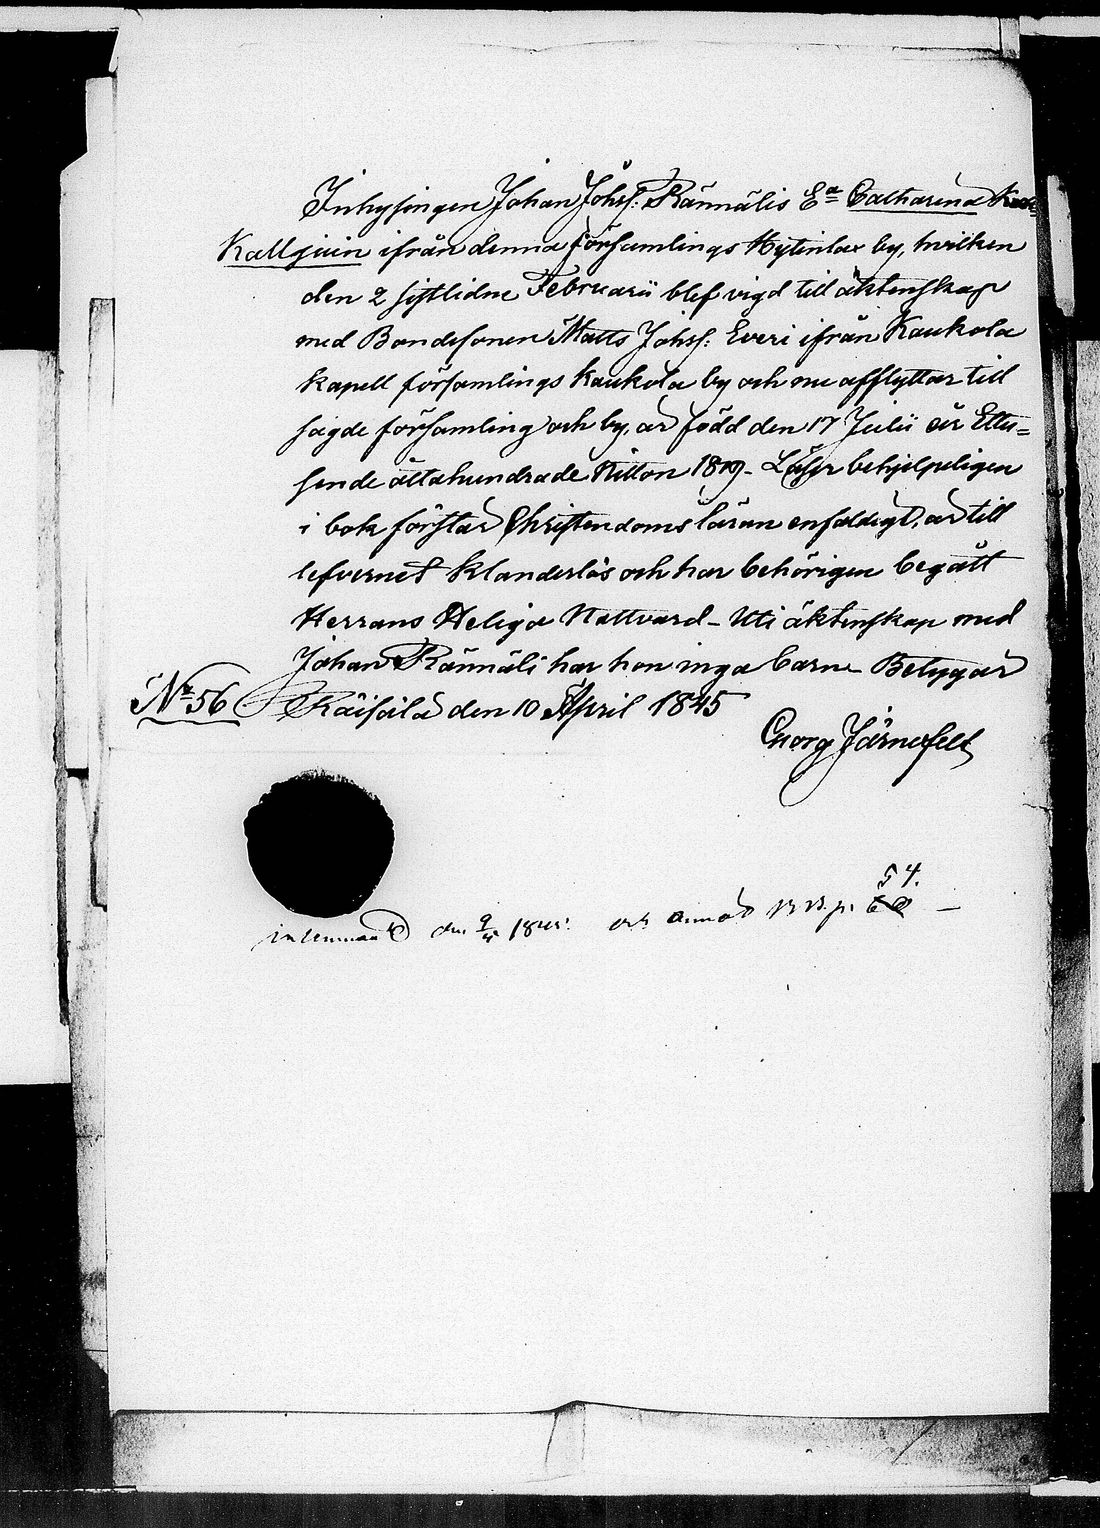 Inhysingen Johan Johsf: Rännälis Ea Catharina
Kalljuin ifrån denna församlings Hytinlax by, hvilken
den 2 sistlidne Februarii blef vigd till äktenskap
med Bondesonen Matts Johsf: Everi ifrån Kaukola
Kapell församlings Kaukola by och nu afflyttar till
sagde församling och by, är född den 17 Julii år Ettu=
sende åttahundrade Nitton 1819 - Läser behjelpeligen
i bok förstår Christendoms läran enfaldigt, är till
lefvernet Klanderlös och har behörigen begått
Herrans Heliga Nattvard - Uti äktenskap med
Johan Rännäli har hon inga barn - Betygar
No 56 Räisälä den 10 April 1845
Georg Järnefelt
54.
inlemnad den 9/5 1845: och annot